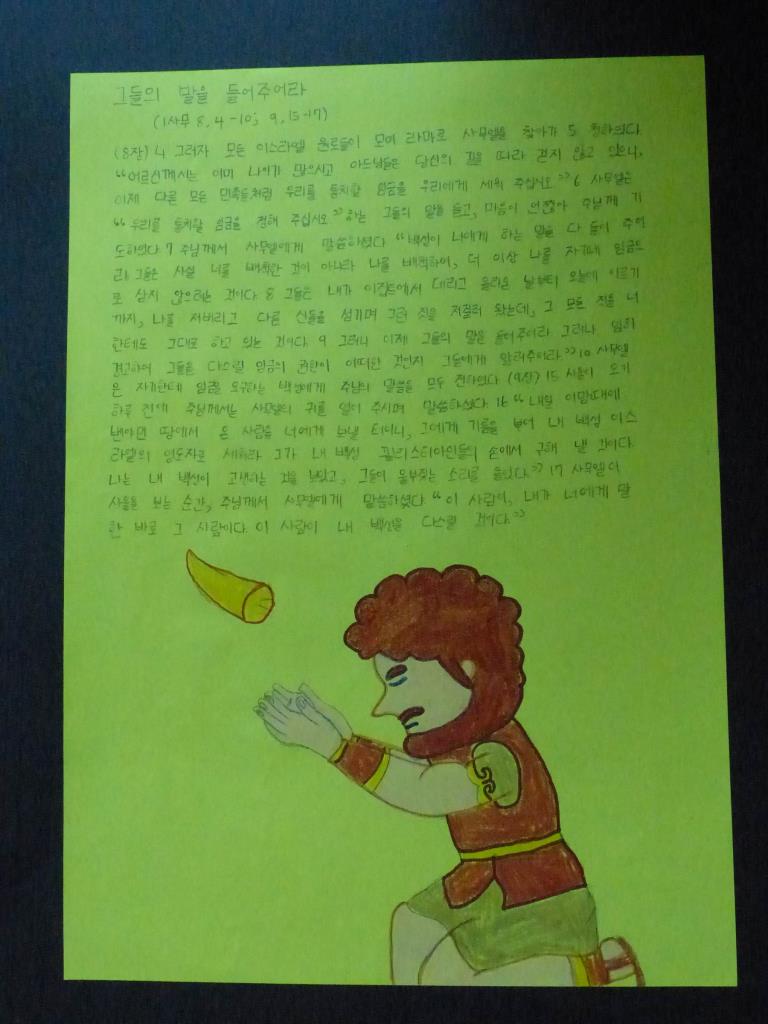 그들의 말을 들어주어라
(1사무 8, 4-10; 9, 15-17)
(8장) 4 그러자 모든 이스라엘 원로들이 모여 라마로 사무엘을 찾아가 5 청하였다.
“어르신께서는 이미 나이가 많으시고 아드님들은 당신의 길을 따라 걷지 않고 있으니,
이제 다른 모든 민족들처럼 우리를 통치할 임금을 우리에게 세워 주십시오.” 6 사무엘은
“우리를 통치할 임금을 정해 주십시오.” 하는 그들의 말을 듣고, 마음이 언짢아 주님께 기
도하였다. 7 주님께서 사무엘에게 말씀하셨다. “백성이 너에게 하는 말을 다 들어 주어
라. 그들은 사실 너를 배척한 것이 아니라 나를 배척하여, 더 이상 나를 자기네 임금으
로 삼지 않으려는 것이다. 8 그들은 내가 이집트에서 데리고 올라온 날부터 오늘에 이르기
까지, 나를 저버리고 다른 신들을 섬기며 그런 짓을 저질러 왔는데, 그 모든 짓을 너
한테도 그대로 하고 있는 것이다. 9 그러니 이제 그들의 말을 들어주어라. 그러나 엄히
경고하여 그들을 다스릴 임금의 권한이 어떠한 것인지 그들에게 알려주어라.” 10 사무엘
은 자기한테 임금을 요구하는 백성에게 주님의 말씀을 모두 전하였다. (9장) 15 사울이 오기
하루 전에 주님께서는 사무엘의 귀를 열어 주시며 말씀하셨다. 16 “내일 이맘때에
벤야민 땅에서 온 사람을 너에게 보낼 터이니, 그에게 기름을 부어 내 백성 이스
라엘의 영도자로 세워라. 그가 내 백성 필리스티아인들의 손에서 구해 낼 것이다.
나는 내 백성이 고생하는 것을 보았고, 그들이 울부짖는 소리를 들었다.” 17 사무엘이
사울을 보는 순간, 주님께서 사무엘에게 말씀하셨다. “이 사람이, 내가 너에게 말
한 바로 그 사람이다. 이 사람이 내 백성을 다스릴 것이다.”